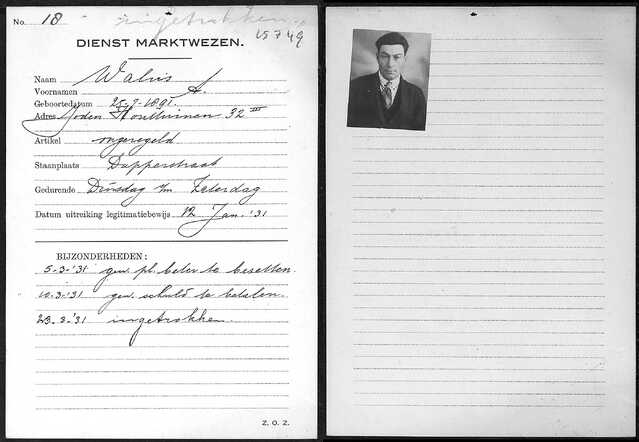 No. 18 ingetrokken
15 7 49
DIENST MARKTWEZEN.
Naam Walvis
Voornamen A.
Geboortedatum 25-7-1891.
Adres Joden Houttuinen 32 III
Artikel ongeregeld
Staanplaats Dapperstraat
Gedurende Dinsdag t/m Zaterdag
Datum uitreiking legitimatiebewijs 12 Jan. '31
BIJZONDERHEDEN:
5-3-'31 gew. pl. beter te bezetten.
10-3-'31 gew. schuld te betalen.
23-3-'31 ingetrokken.
Z. O. Z.